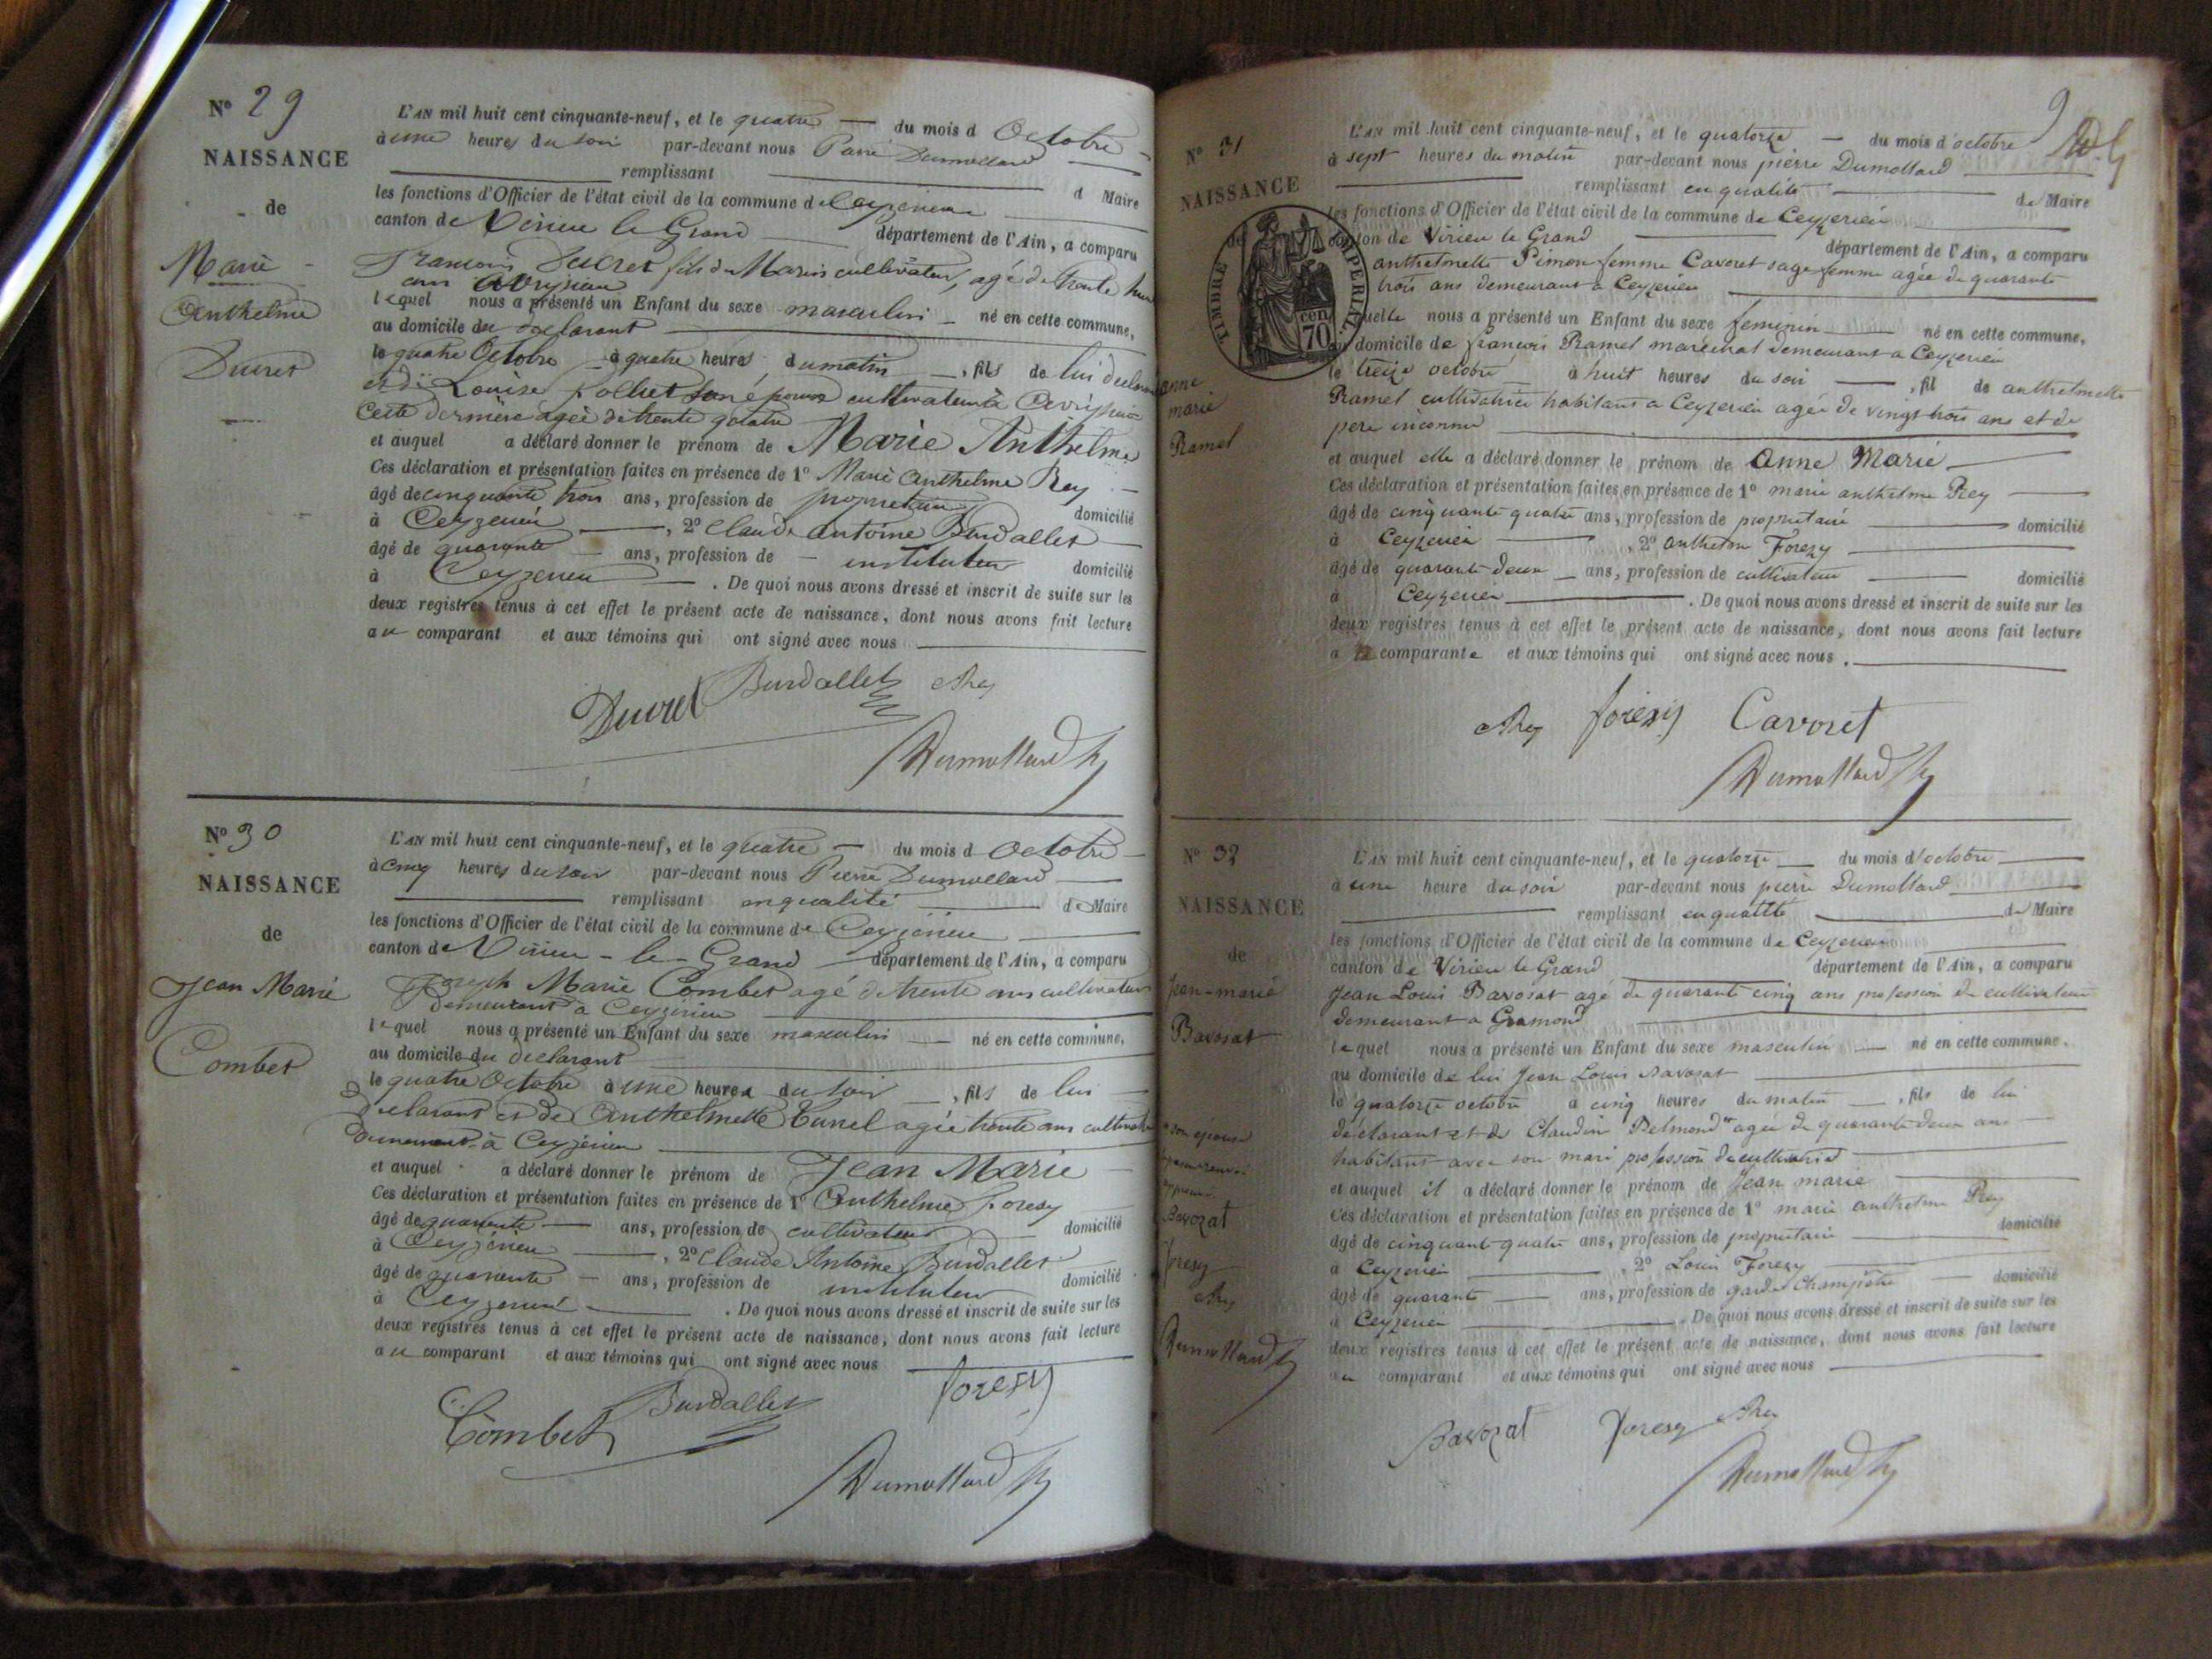 N° 29
NAISSANCE
de
Marie
Anthelme
Ducret
L'AN mil huit cent cinquante-neuf, et le quatre du mois d Octobre
à une heures du soir par-devant nous Pierre Dumollard
remplissant d Maire
les fonctions d'Officier de l'état civil de la commune de Ceyzerieu
canton de Virieu le Grand département de l'Ain, a comparu
François Ducret fils de Marin cultivateur, agé de trente huit
ans
lequel nous a présenté un Enfant du sexe masculin né en cette commune,
au domicile du declarant
le quatre Octobre à quatre heures du matin, fils de lui declarant
et de Louise Pollet son épouse cultivateur à
Cette dernière agée de trente quatre
et auquel a déclaré donner le prénom de Marie Anthelme
Ces déclaration et présentation faites en présence de 1° Marie Anthelme Rey
âgé de cinquante trois ans, profession de proprietaire domicilié
à Ceyzerieu, 2° Claude Antoine Burdallet
âgé de quarante ans, profession de instituteur domicilié
à Ceyzerieu. De quoi nous avons dressé et inscrit de suite sur les
deux registres tenus à cet effet le présent acte de naissance, dont nous avons fait lecture
au comparant et aux témoins qui ont signé avec nous
Ducret Burdallet Rey
Dumollard
N° 30
NAISSANCE
de
Jean Marie
Combet
L'AN mil huit cent cinquante-neuf, et le quatre du mois d Octobre
à cinq heures du soir par-devant nous Pierre Dumollard
remplissant en qualité de Maire
les fonctions d'Officier de l'état civil de la commune de Ceyzerieu
canton de Virieu-le-Grand département de l'Ain, a comparu
Joseph Marie Combet agé de trente ans cultivateur
Demeurant a Ceyzerieu
lequel nous a présenté un Enfant du sexe masculin né en cette commune,
au domicile du declarant
le quatre Octobre à une heures du soir, fils de lui
declarant et de Anthelmette agée trente ans
Demeurant à Ceyzerieu
et auquel a déclaré donner le prénom de Jean Marie
Ces déclaration et présentation faites en présence de 1° Anthelme Forezy
âgé de quarante ans, profession de cultivateur domicilié
à Ceyzerieu, 2° Claude Antoine Burdallet
âgé de quarante ans, profession de instituteur domicilié
à Ceyzerieu. De quoi nous avons dressé et inscrit de suite sur les
deux registres tenus à cet effet le présent acte de naissance, dont nous avons fait lecture
au comparant et aux témoins qui ont signé avec nous
Combet Burdallet forezy
Dumollard
9
N° 31
NAISSANCE
de
TIMBRE IMPERIAL
70 cen
anne
marie
Ramel
L'AN mil huit cent cinquante-neuf, et le quatorze du mois d'octobre
à sept heures du matin par-devant nous pierre Dumollard
remplissant en qualité de Maire
les fonctions d'Officier de l'état civil de la commune de Ceyzerieu
canton de Virieu le Grand département de l'Ain, a comparu
anthelmette Simon femme Cavoret sage femme agée de quarante
trois ans demeurant a Ceyzerieu
laquelle nous a présenté un Enfant du sexe feminin né en cette commune,
au domicile de françois Ramel maréchal demeurant a Ceyzerieu
le treize octobre à huit heures du soir, fil de anthelmette
Ramel cultivatrice habitant a Ceyzerieu agée de vingt trois ans et de
pere inconnu
et auquel elle a déclaré donner le prénom de Anne Marie
Ces déclaration et présentation faites en présence de 1° marie anthelme Rey
âgé de cinquante quatre ans, profession de proprietaire domicilié
à Ceyzerieu, 2° anthelme Forezy
âgé de quarante deux ans, profession de cultivateur domicilié
à Ceyzerieu. De quoi nous avons dressé et inscrit de suite sur les
deux registres tenus à cet effet le présent acte de naissance, dont nous avons fait lecture
a la comparante et aux témoins qui ont signé avec nous.
Rey forezy Cavoret
Dumollard
N° 32
NAISSANCE
de
Jean-marie
Bavozat
son epouse
Bavozat
forezy
Rey
Dumollard
L'AN mil huit cent cinquante-neuf, et le quatorze du mois d'octobre
à une heure du soir par-devant nous pierre Dumollard
remplissant en qualité de Maire
les fonctions d'Officier de l'état civil de la commune de Ceyzerieu
canton de Virieu le Grand département de l'Ain, a comparu
Jean Louis Bavosat agé de quarante cinq ans profession de cultivateur
demeurant a Gramond
lequel nous a présenté un Enfant du sexe masculin né en cette commune.
au domicile de lui Jean Louis Bavosat
le quatorze octobre à cinq heures du matin, fils de lui
déclarant et de Claudine Belmond agée de quarante deux ans
habitant avec son mari profession de
et auquel il a déclaré donner le prénom de Jean marie
Ces déclaration et présentation faites en présence de 1° marie anthelme Rey
âgé de cinquante quatre ans, profession de proprietaire domicilié
à Ceyzerieu, 2° Louis Forezy
âgé de quarante ans, profession de garde Champetre domicilié
à Ceyzerieu. De quoi nous avons dressé et inscrit de suite sur les
deux registres tenus à cet effet le présent acte de naissance, dont nous avons fait lecture
au comparant et aux témoins qui ont signé avec nous
Bavozat Forezy Rey
Dumollard